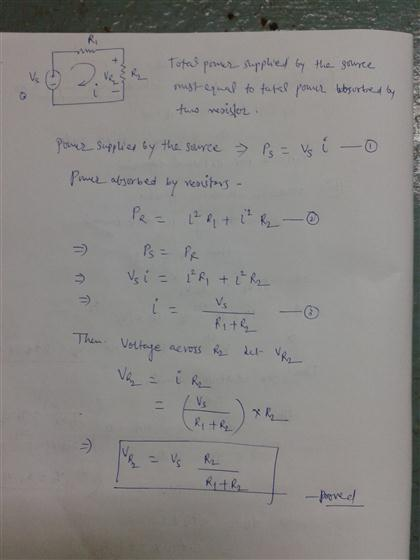 R₁
Vs
i
+
VR₂
-
R₂
Total power supplied by the source
must equal to total power absorbed by
two resistor.
Power supplied by the source ⇒ Ps = Vs i — ①
Power absorbed by resistors -
PR = i² R₁ + i² R₂ — ②
⇒ Ps = PR
⇒ Vs i = i² R₁ + i² R₂
⇒ i = Vs / (R₁ + R₂) — ③
Then Voltage across R₂ let VR₂
VR₂ = i R₂
= (Vs / (R₁ + R₂)) × R₂
⇒ VR₂ = Vs R₂ / (R₁ + R₂)
— proved